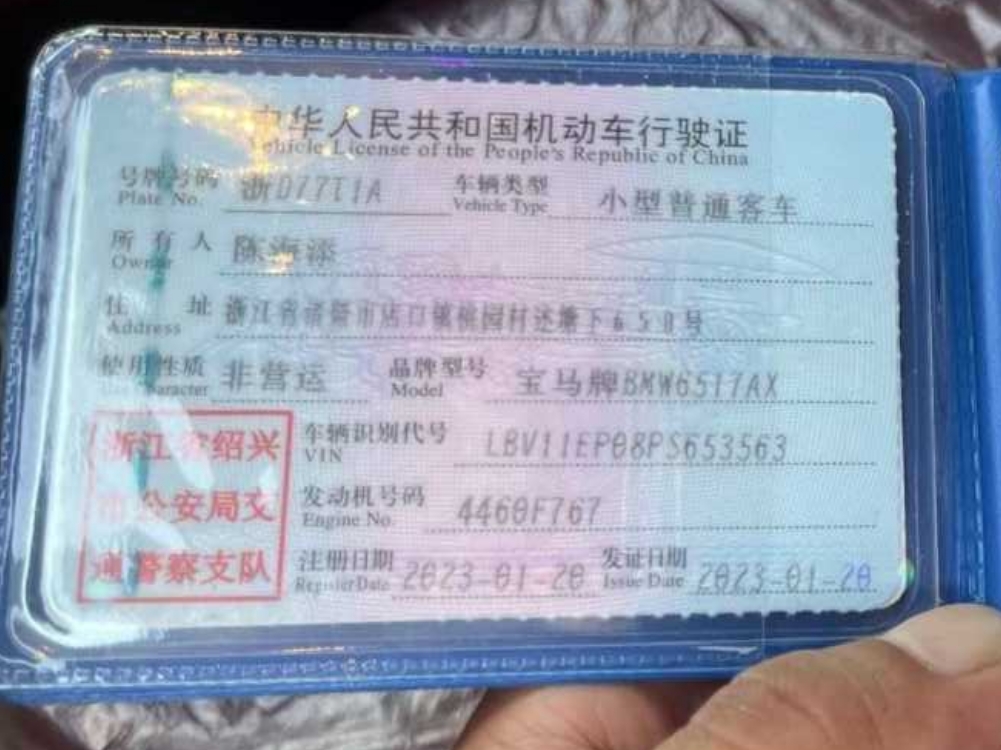 中华人民共和国机动车行驶证
Vehicle License of the People's Republic of China
号牌号码 浙D77T1A 车辆类型 小型普通客车
Plate No. Vehicle Type
所有人 陈海添
Owner
住址 浙江省诸暨市店口镇桃园村述塘下650号
Address
使用性质 非营运 品牌型号 宝马牌BMW6517AX
Character Model
浙江省绍兴 车辆识别代号 LBV11EP08PS653563
VIN
市公安局交 发动机号码 4460F767
Engine No.
通警察支队 注册日期 2023-01-20 发证日期 2023-01-20
Register Date Issue Date